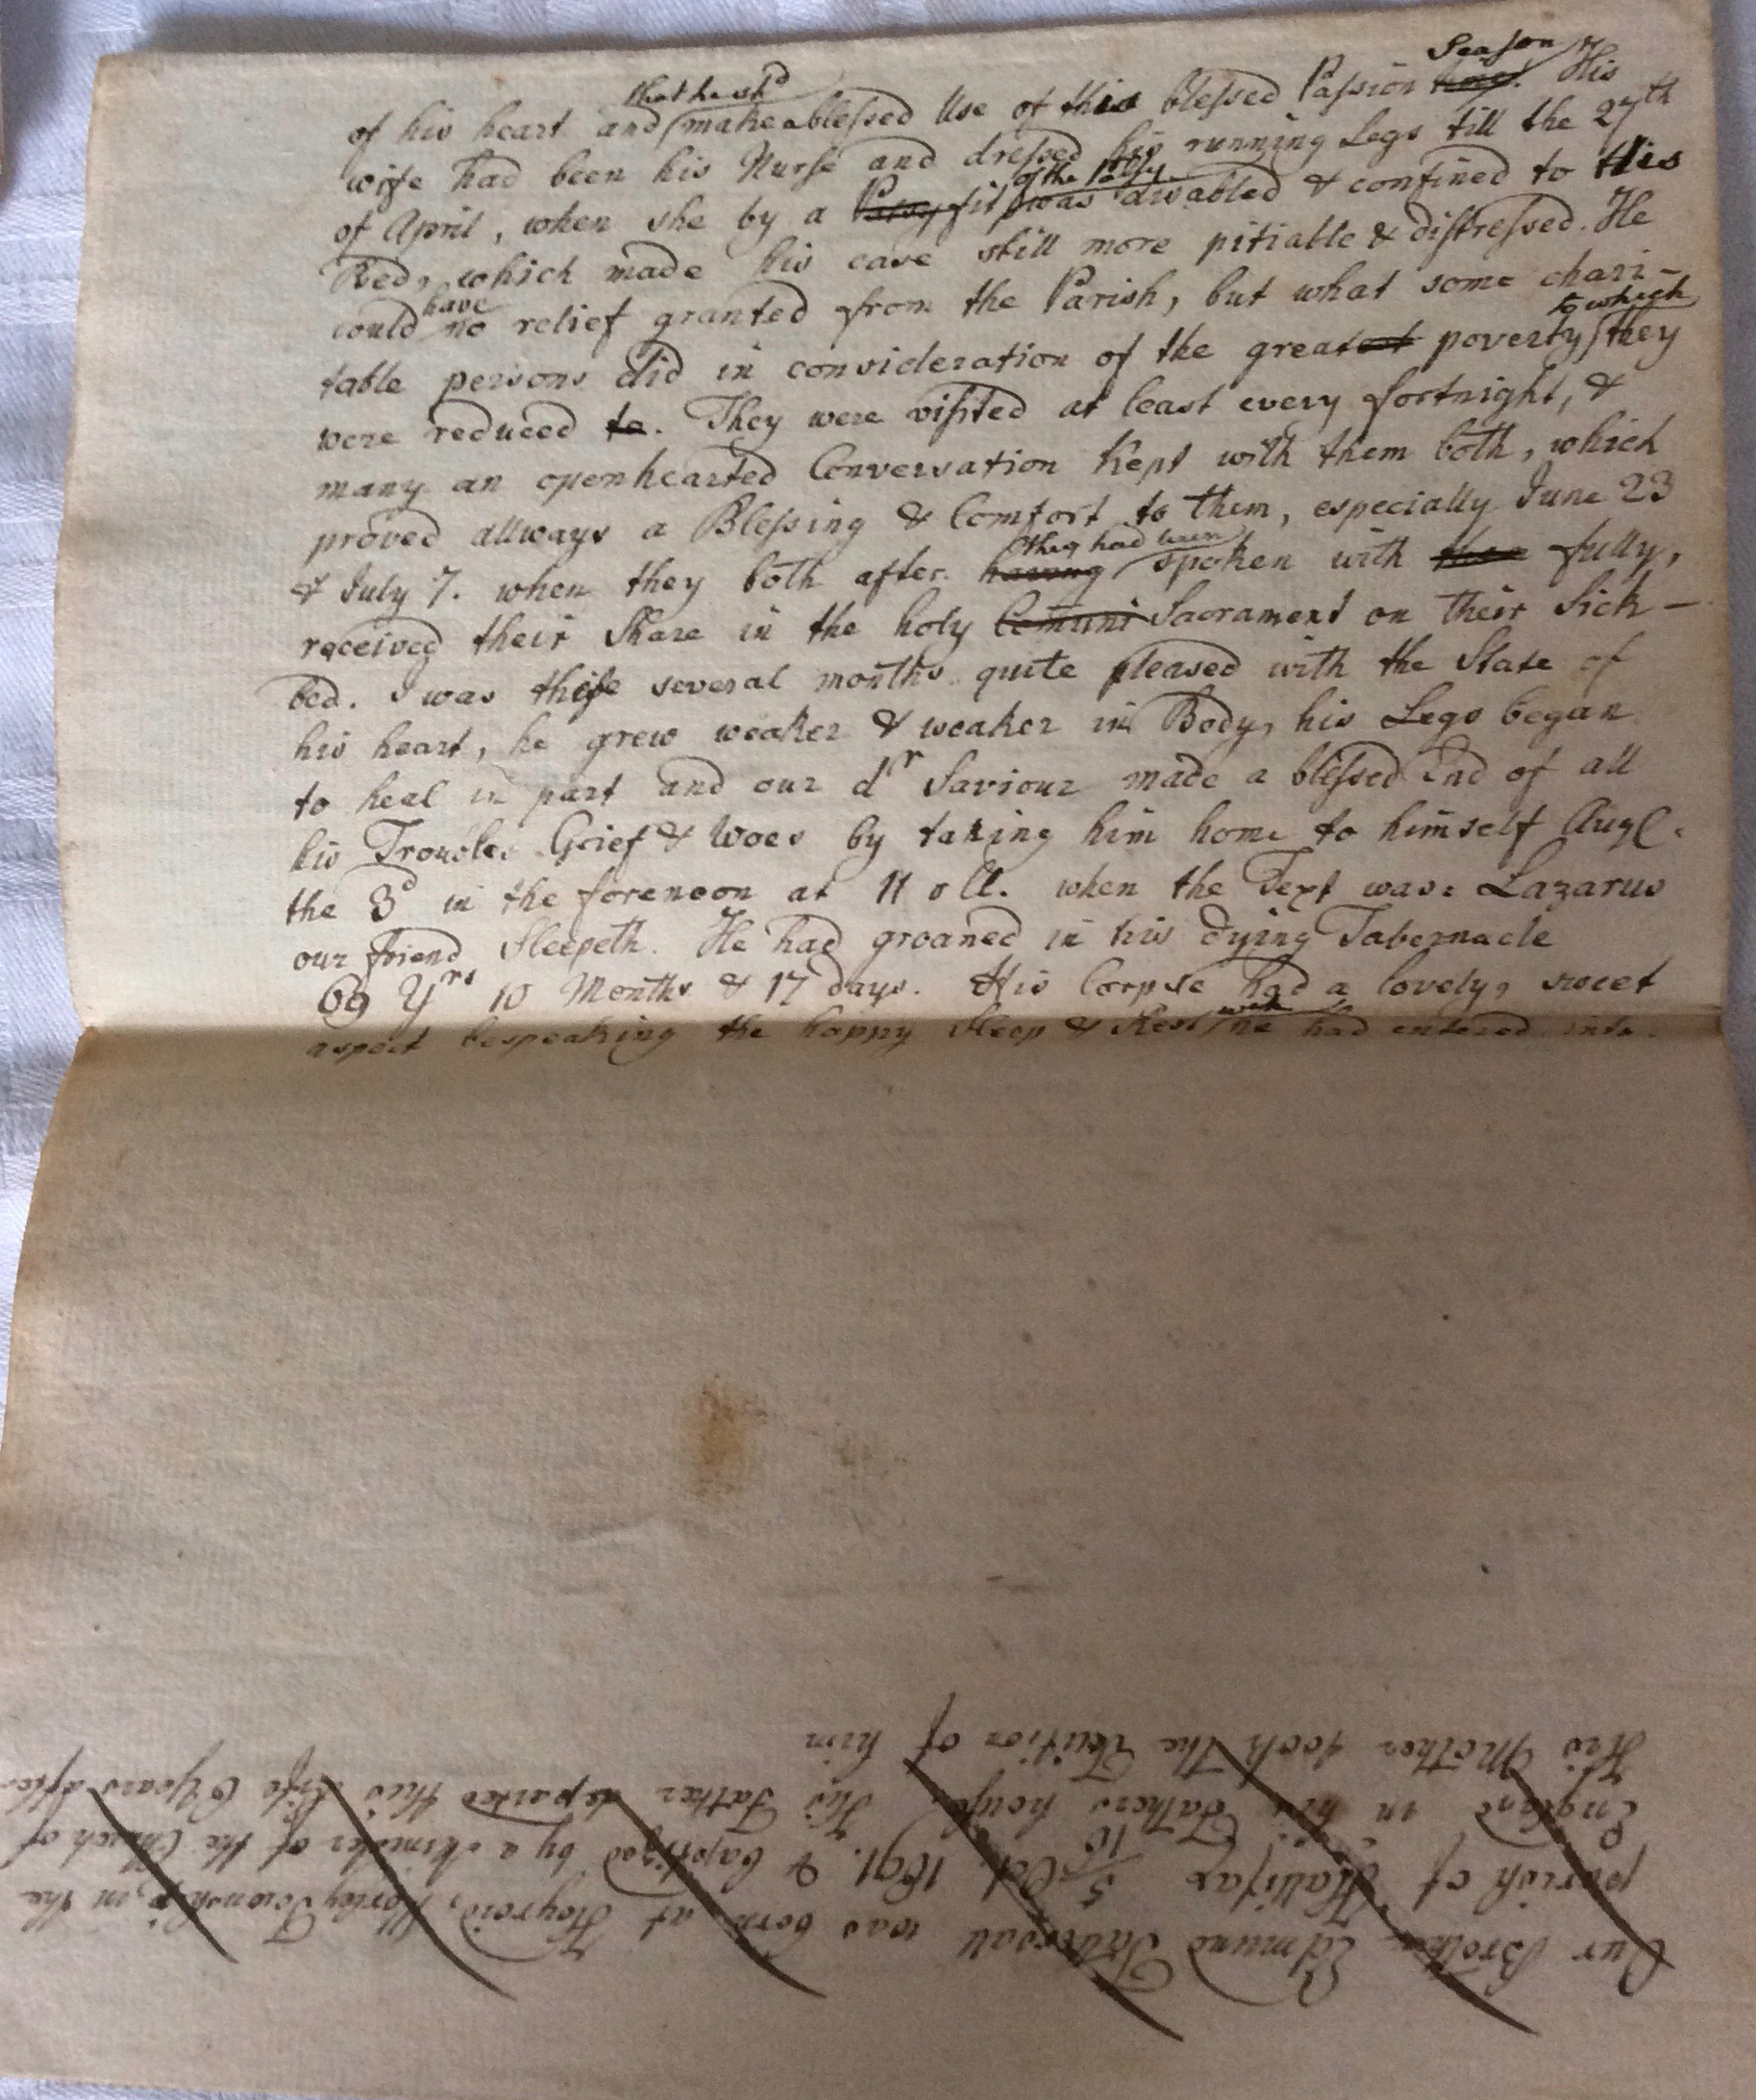 of his heart and that he sh.d make a blessed Use of this blessed Passion Season. His
wife had been his Nurse and dressed his running Legs till the 27th
of April, when she by a Palsy fit of the Palsy was disabled & confined to this
Bed, which made his case still more pitiable & distressed. He
could have no relief granted from the Parish, but what some chari-
table persons did in consideration of the greatest poverty to which they
were reduced to. They were visited at least every fortnight, &
many an openhearted Conversation kept with them both, which
proved allways a Blessing & Comfort to them, especially June 23
& July 7. when they both after having they had been spoken with fully,
received their Share in the holy Comuni Sacrament on their Sick-
bed. I was these several months quite pleased with the State of
his heart, he grew weaker & weaker in Body, his Legs began
to heal in part and our dr Saviour made a blessed End of all
his Troubles Grief & Woes by taking him home to himself Aug.
the 3d in the forenoon at 11 o Cl. when the Text was: Lazarus
our friend Sleepeth. He had groaned in his dying Tabernacle
69 Yrs 10 Months & 17 days. His Corpse had a lovely, sweet
aspect bespeaking the happy Sleep & Rest wch he had entered into.
Our Brother Edmund Tattersall was born at Hoyroid, Northey Township, in the
parish of Hallifax 5/16 Oct. 1691. & baptized by a Minister of the Church of
England in his Fathers house. His Father departed this Life 6 Years after
His Mother took the Tuition of him